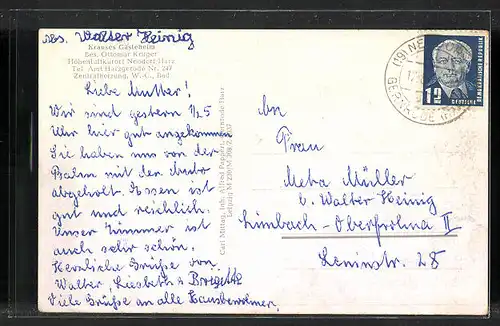 Abs. Walter Heinig
Krauses Gästeheim
Bes. Ottomar Krüger
Höhenluftkurort Neudorf/Harz
Tel. Amt Harzgerode Nr. 247
Zentralheizung, W.-C., Bad
Liebe Mutter!
Wir sind gestern 1/2 5
Uhr hier gut angekommen
Sie haben uns von der
Bahn mit den Auto
abgeholt. Essen ist
gut und reichlich.
Unser Zimmer ist
auch sehr schön.
Herzliche Grüße von
Walter, Liesbeth u Brigitte
Viele Grüße an alle Hausbewohner.
Carl Mittag, Inh. Alfred
Leipzig M
An
Frau
Meta Müller
b. Walter Heinig
Limbach-Oberfrohna II
Leninstr. 28
(19) NE
12
DEUTSCHE